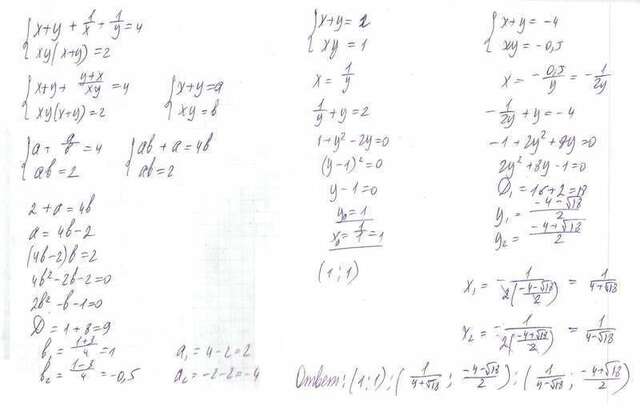 {x+y+1/x+1/y=4
{xy(x+y)=2
{x+y+(y+x)/xy=4
{xy(x+y)=2
{x+y=a
{xy=b
{a+a/b=4
{ab=2
{ab+a=4b
{ab=2
2+a=4b
a=4b-2
(4b-2)b=2
4b²-2b-2=0
2b²-b-1=0
D=1+8=9
b₁=(1+3)/4=1
b₂=(1-3)/4=-0,5
a₁=4-2=2
a₂=-2-2=-4
{x+y=2
{xy=1
x=1/y
1/y+y=2
1+y²-2y=0
(y-1)²=0
y-1=0
y₀=1
x₀=1/1=1
(1;1)
{x+y=-4
{xy=-0,5
x=-0,5/y=-1/2y
-1/2y+y=-4
-1+2y²+8y=0
2y²+8y-1=0
D₁=16+2=18
y₁=(-4-√18)/2
y₂=(-4+√18)/2
x₁=-1/(2((-4-√18)/2))=1/(4+√18)
x₂=-1/(2((-4+√18)/2))=1/(4-√18)
Ответ: (1;1); (1/(4+√18); (-4-√18)/2); (1/(4-√18); (-4+√18)/2)